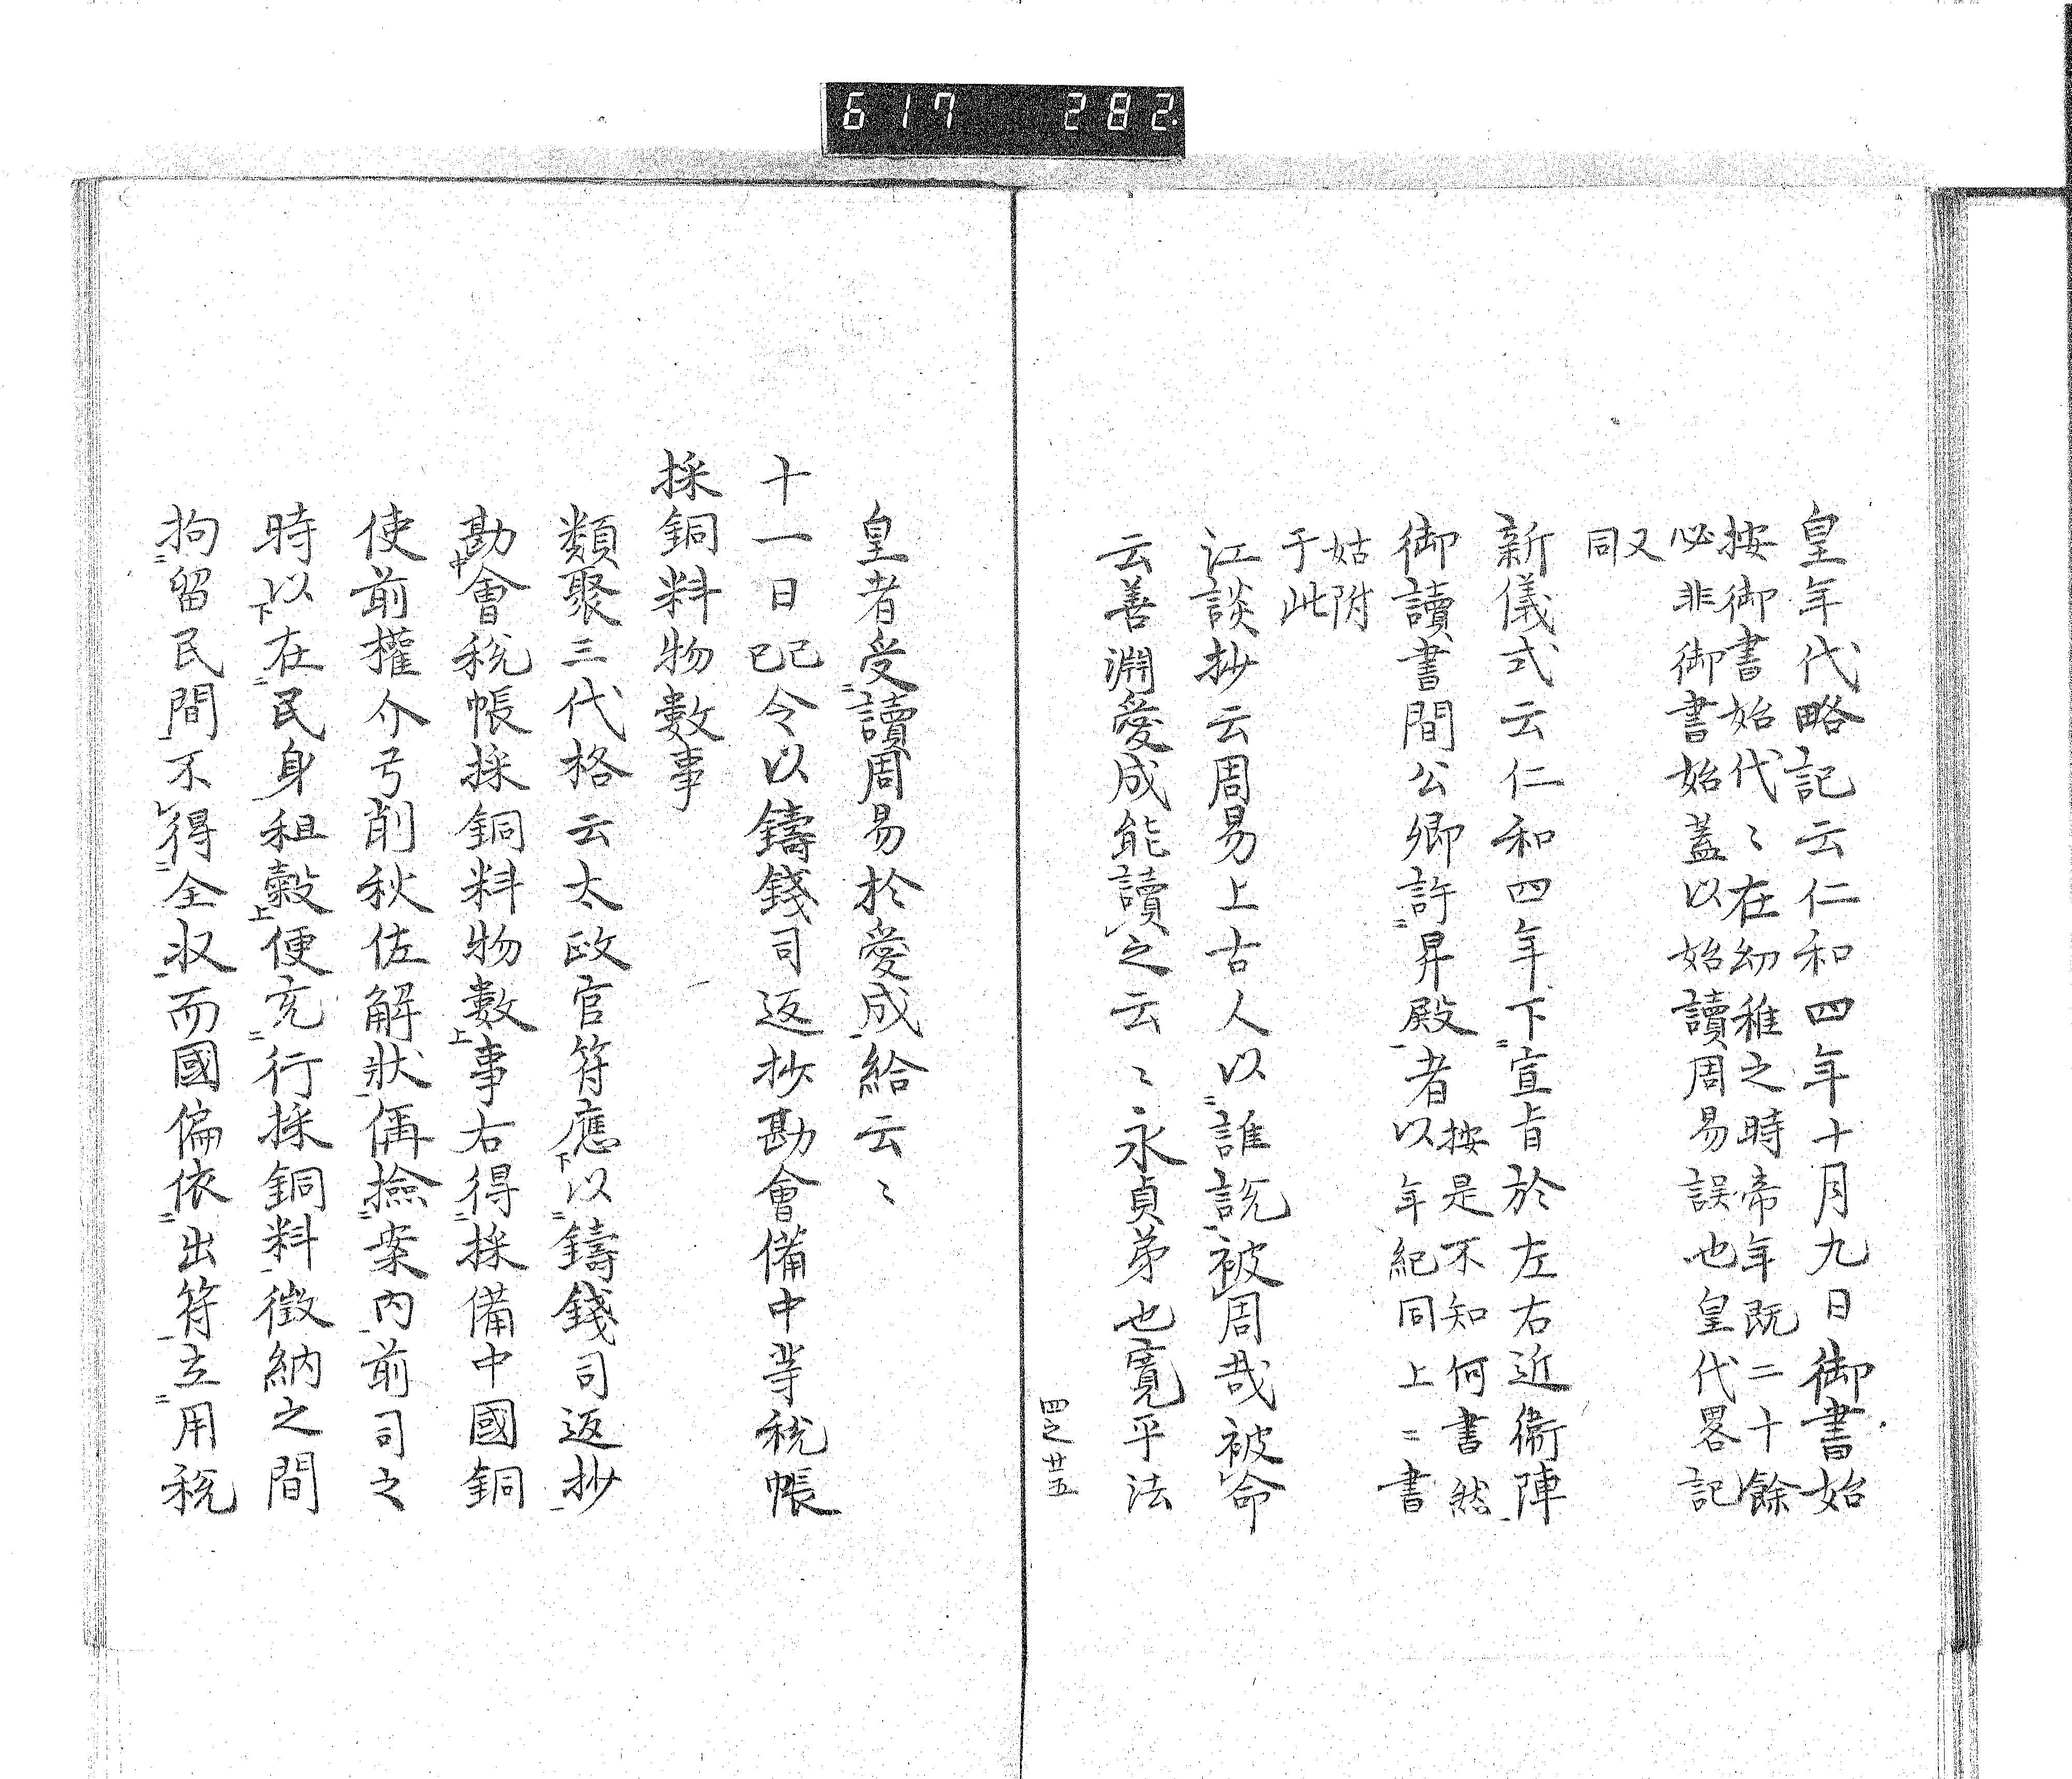 617 282
皇年代略記云仁和四年十月九日御書始
按御書始代〻在幼稚之時帝年既二十餘
必非御書始蓋以始讀周易誤也皇代畧記
又
同
新儀式云仁和四年下宣旨於左右近衞陣
御讀書間公卿許昇殿者
按是不知何書然
以年紀同上二書
姑附
于此
江談抄云周易上古人以誰説被周哉被命
云善淵愛成能讀之云〻永貞弟也寛平法
四之廿五
皇者受讀周易於愛成給云〻
十一日己巳令以鑄錢司返抄勘會備中等税帳
採銅料物數事
類聚三代格云太政官符應以鑄錢司返抄
勘會税帳採銅料物數事右得採備中國銅
使前權介弓削秋佐解狀偁撿案內前司之
時以在民身租穀便充行採銅料徵納之間
拘留民間不得全収而國偏依出符立用税